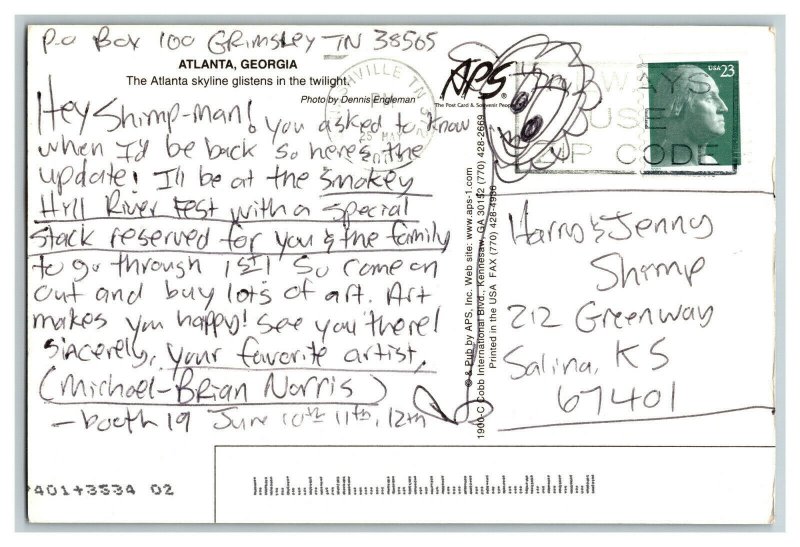 P.O Box 100 Grimsley TN 38565
ATLANTA, GEORGIA
The Atlanta skyline glistens in the twilight.
Photo by Dennis Engleman
APS®
The Post Card & Souvenir People
USA 23
WAYS
USE
ZIP CODE
Hey Shimp-man! you asked to know
when I'd be back so here's the
update! I'll be at the Smokey
Hill River Fest with a special
stack reserved for you & the family
to go through 1st! So come on
out and buy lots of art. Art
makes you happy! See you there!
Sincerely, your favorite artist,
(Michael-Brian Norris)
- booth 19 June 10th 11th, 12th
© & Pub by APS, Inc. Web site: www.aps-1.com
1900-C Cobb International Blvd., Kennesaw, GA 30152 (770) 428-2669
Printed in the USA FAX (770) 428-4936
Harry & Jenny
Shimp
212 Greenway
Salina, KS
67401
401+3534 02